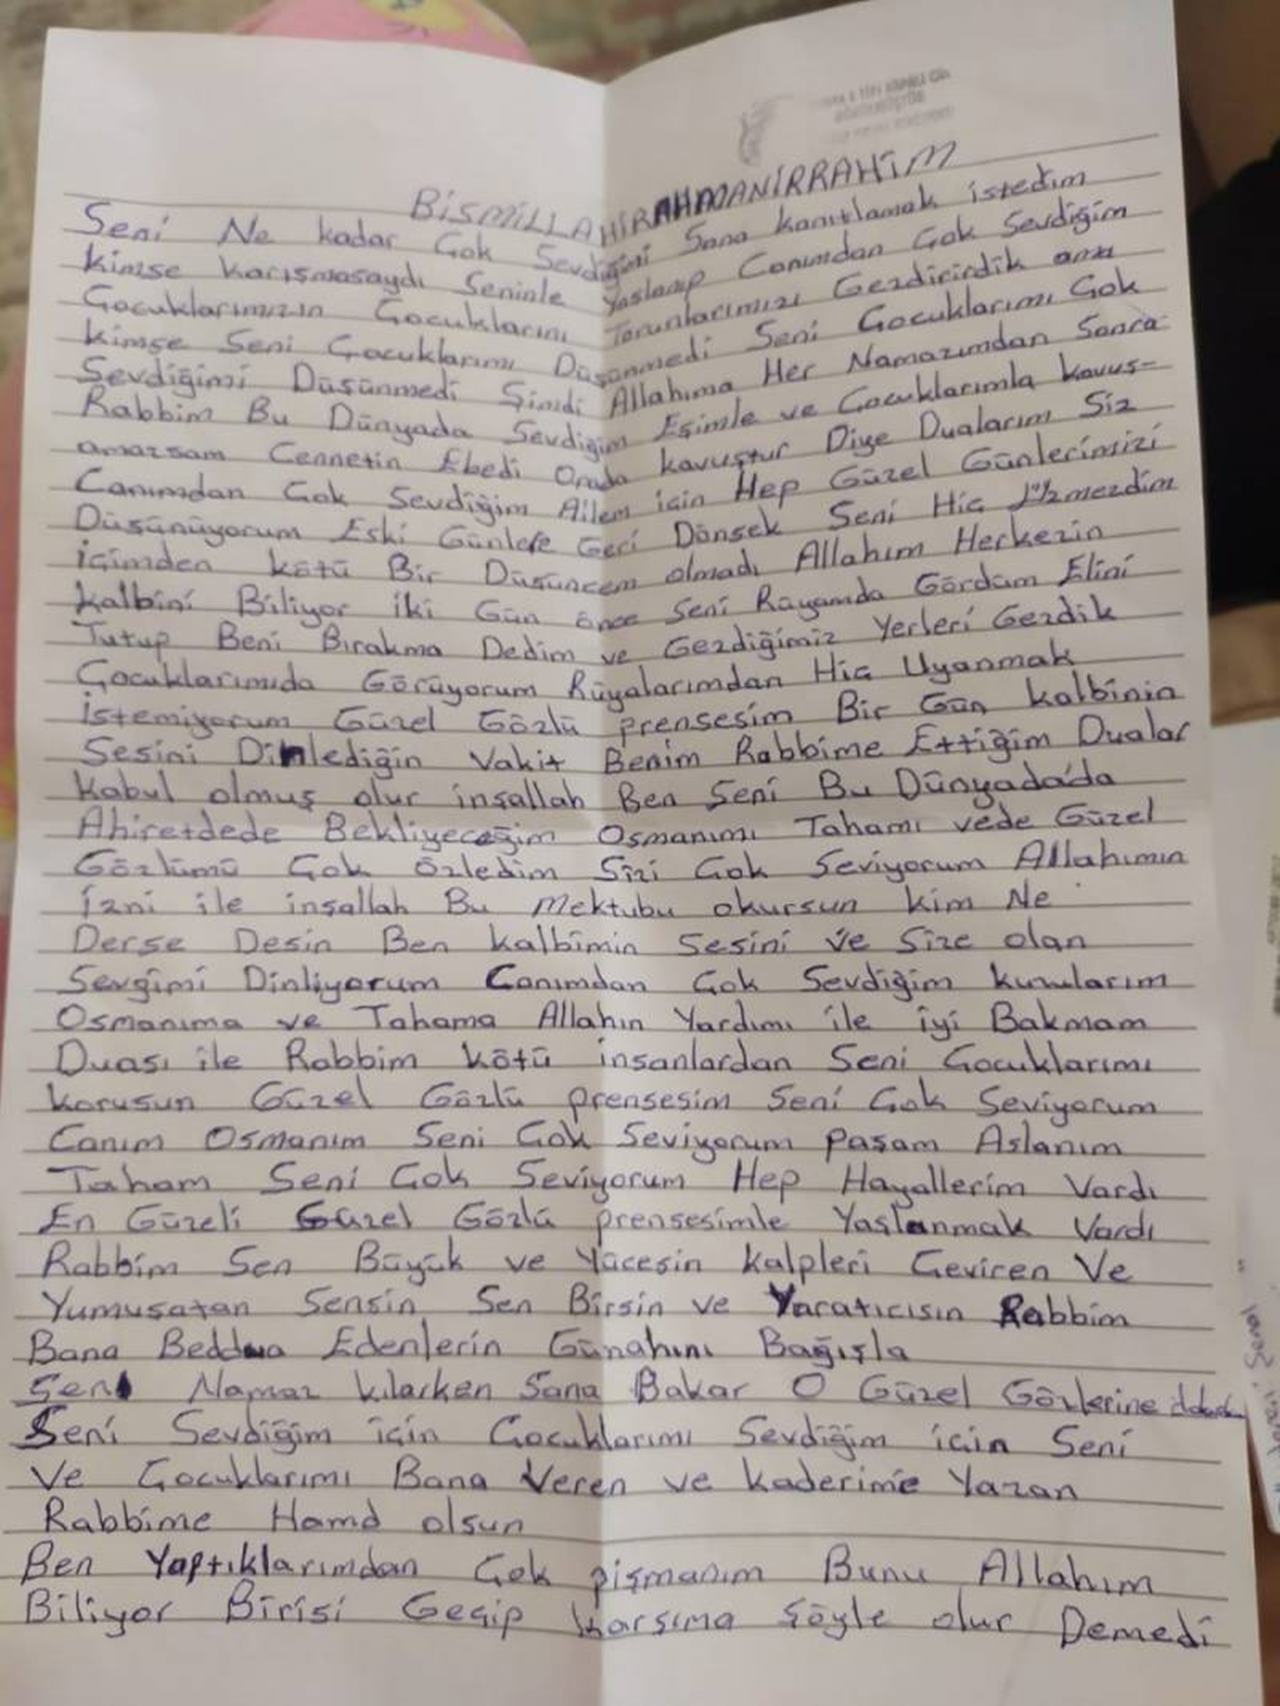 BİSMİLLAHİRAHMANİRRAHİM
Seni Ne kadar Çok Sevdiğimi Sana kanıtlamak istedim
kimse karışmasaydı Seninle Yaslanıp Canımdan Çok Sevdiğim
Çocuklarımızın Çocuklarını Torunlarımızı Gezdirirdik ama
kimse Seni Çocuklarımı Düşünmedi Seni Çocuklarımı Çok
Sevdiğimi Düşünmedi Şimdi Allahıma Her Namazımdan Sonra
Rabbim Bu Dünyada Sevdiğim Eşimle ve Çocuklarımla kavuş-
amazsam Cennetin Ebedi Orada kavuştur Diye Dualarım Siz
Canımdan Çok Sevdiğim Ailem için Hep Güzel Günlerimizi
Düşünüyorum Eski Günlere Geri Dönsek Seni Hiç Üzmezdim
içimden kötü Bir Düşüncem olmadı Allahım Herkezin
kalbini Biliyor iki Gün önce Seni Rüyamda Gördüm Elini
Tutup Beni Bırakma Dedim ve Gezdiğimiz Yerleri Gezdik
Çocuklarımıda Görüyorum Rüyalarımdan Hiç Uyanmak
istemiyorum Güzel Gözlü prensesim Bir Gün kalbinin
Sesini Dinlediğin Vakit Benim Rabbime Ettiğim Dualar
Kabul olmuş olur inşallah Ben Seni Bu Dünyada'da
Ahiretdede Bekliyeceğim Osmanımı Tahamı vede Güzel
Gözlümü Çok özledim Sizi Çok Seviyorum Allahımın
İzni ile inşallah Bu Mektubu okursun kim Ne
Derse Desin Ben kalbimin Sesini Ve Size olan
Sevgimi Dinliyorum Canımdan Çok Sevdiğim kuzularım
Osmanıma ve Tahama Allahın Yardımı ile iyi Bakmam
Duası ile Rabbim kötü insanlardan Seni Çocuklarımı
korusun Güzel Gözlü prensesim Seni Çok Seviyorum
Canım Osmanım Seni Çok Seviyorum paşam Aslanım
Taham Seni Çok Seviyorum Hep Hayallerim Vardı
En Güzeli Güzel Gözlü prensesimle Yaslanmak Vardı
Rabbim Sen Büyük ve Yücesin kalpleri Çeviren Ve
Yumuşatan Sensin Sen Birsin ve Yaratıcısın Rabbim
Bana Beddua Edenlerin Günahını Bağışla
Seni Namaz kılarken Sana Bakar O Güzel Gözlerine
Seni Sevdiğim için Çocuklarımı Sevdiğim için Seni
Ve Çocuklarımı Bana Veren ve kaderime Yazan
Rabbime Hamd olsun
Ben Yaptıklarımdan Çok pişmanım Bunu Allahım
Biliyor Birisi Geçip karşıma Şöyle olur Demedi